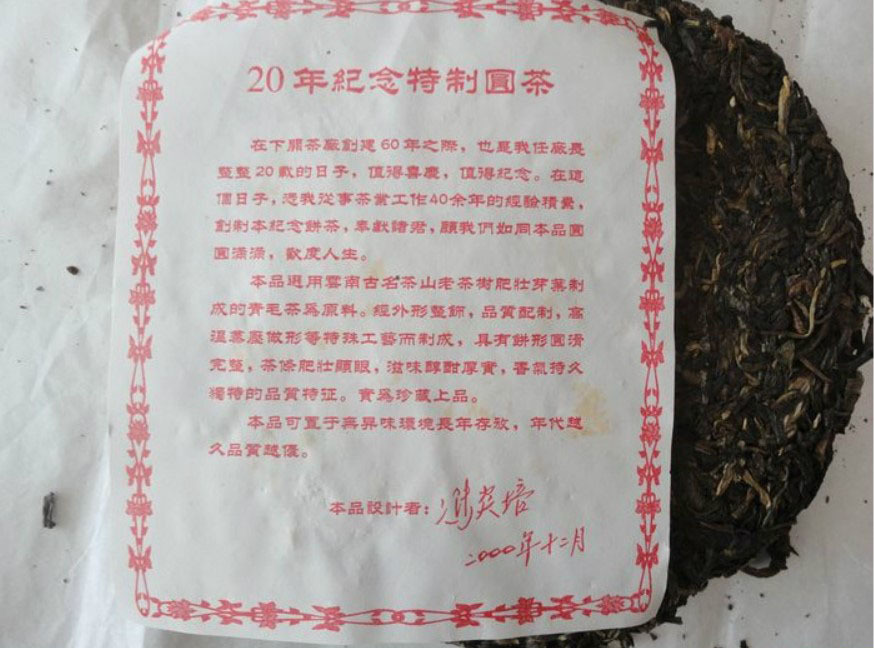 20年紀念特制圓茶
在下關茶廠創建60年之際，也是我任廠長
整整20載的日子，值得喜慶，值得紀念。在這
個日子，憑我從事茶業工作40余年的經驗積纍，
創制本紀念餅茶，奉獻諸君，願我們如同本品圓
圓滿滿，歡度人生。
本品選用雲南古名茶山老茶樹肥壯芽葉制
成的青毛茶爲原料。經外形整飾，品質配制，高
溫蒸壓做形等特殊工藝而制成，具有餅形圓滑
完整，茶條肥壯顯眼，滋味醇酣厚實，香氣持久
獨特的品質特征。實爲珍藏上品。
本品可置于無異味環境長年存放，年代越
久品質越優。
本品設計者：馮炎培
二000年十二月